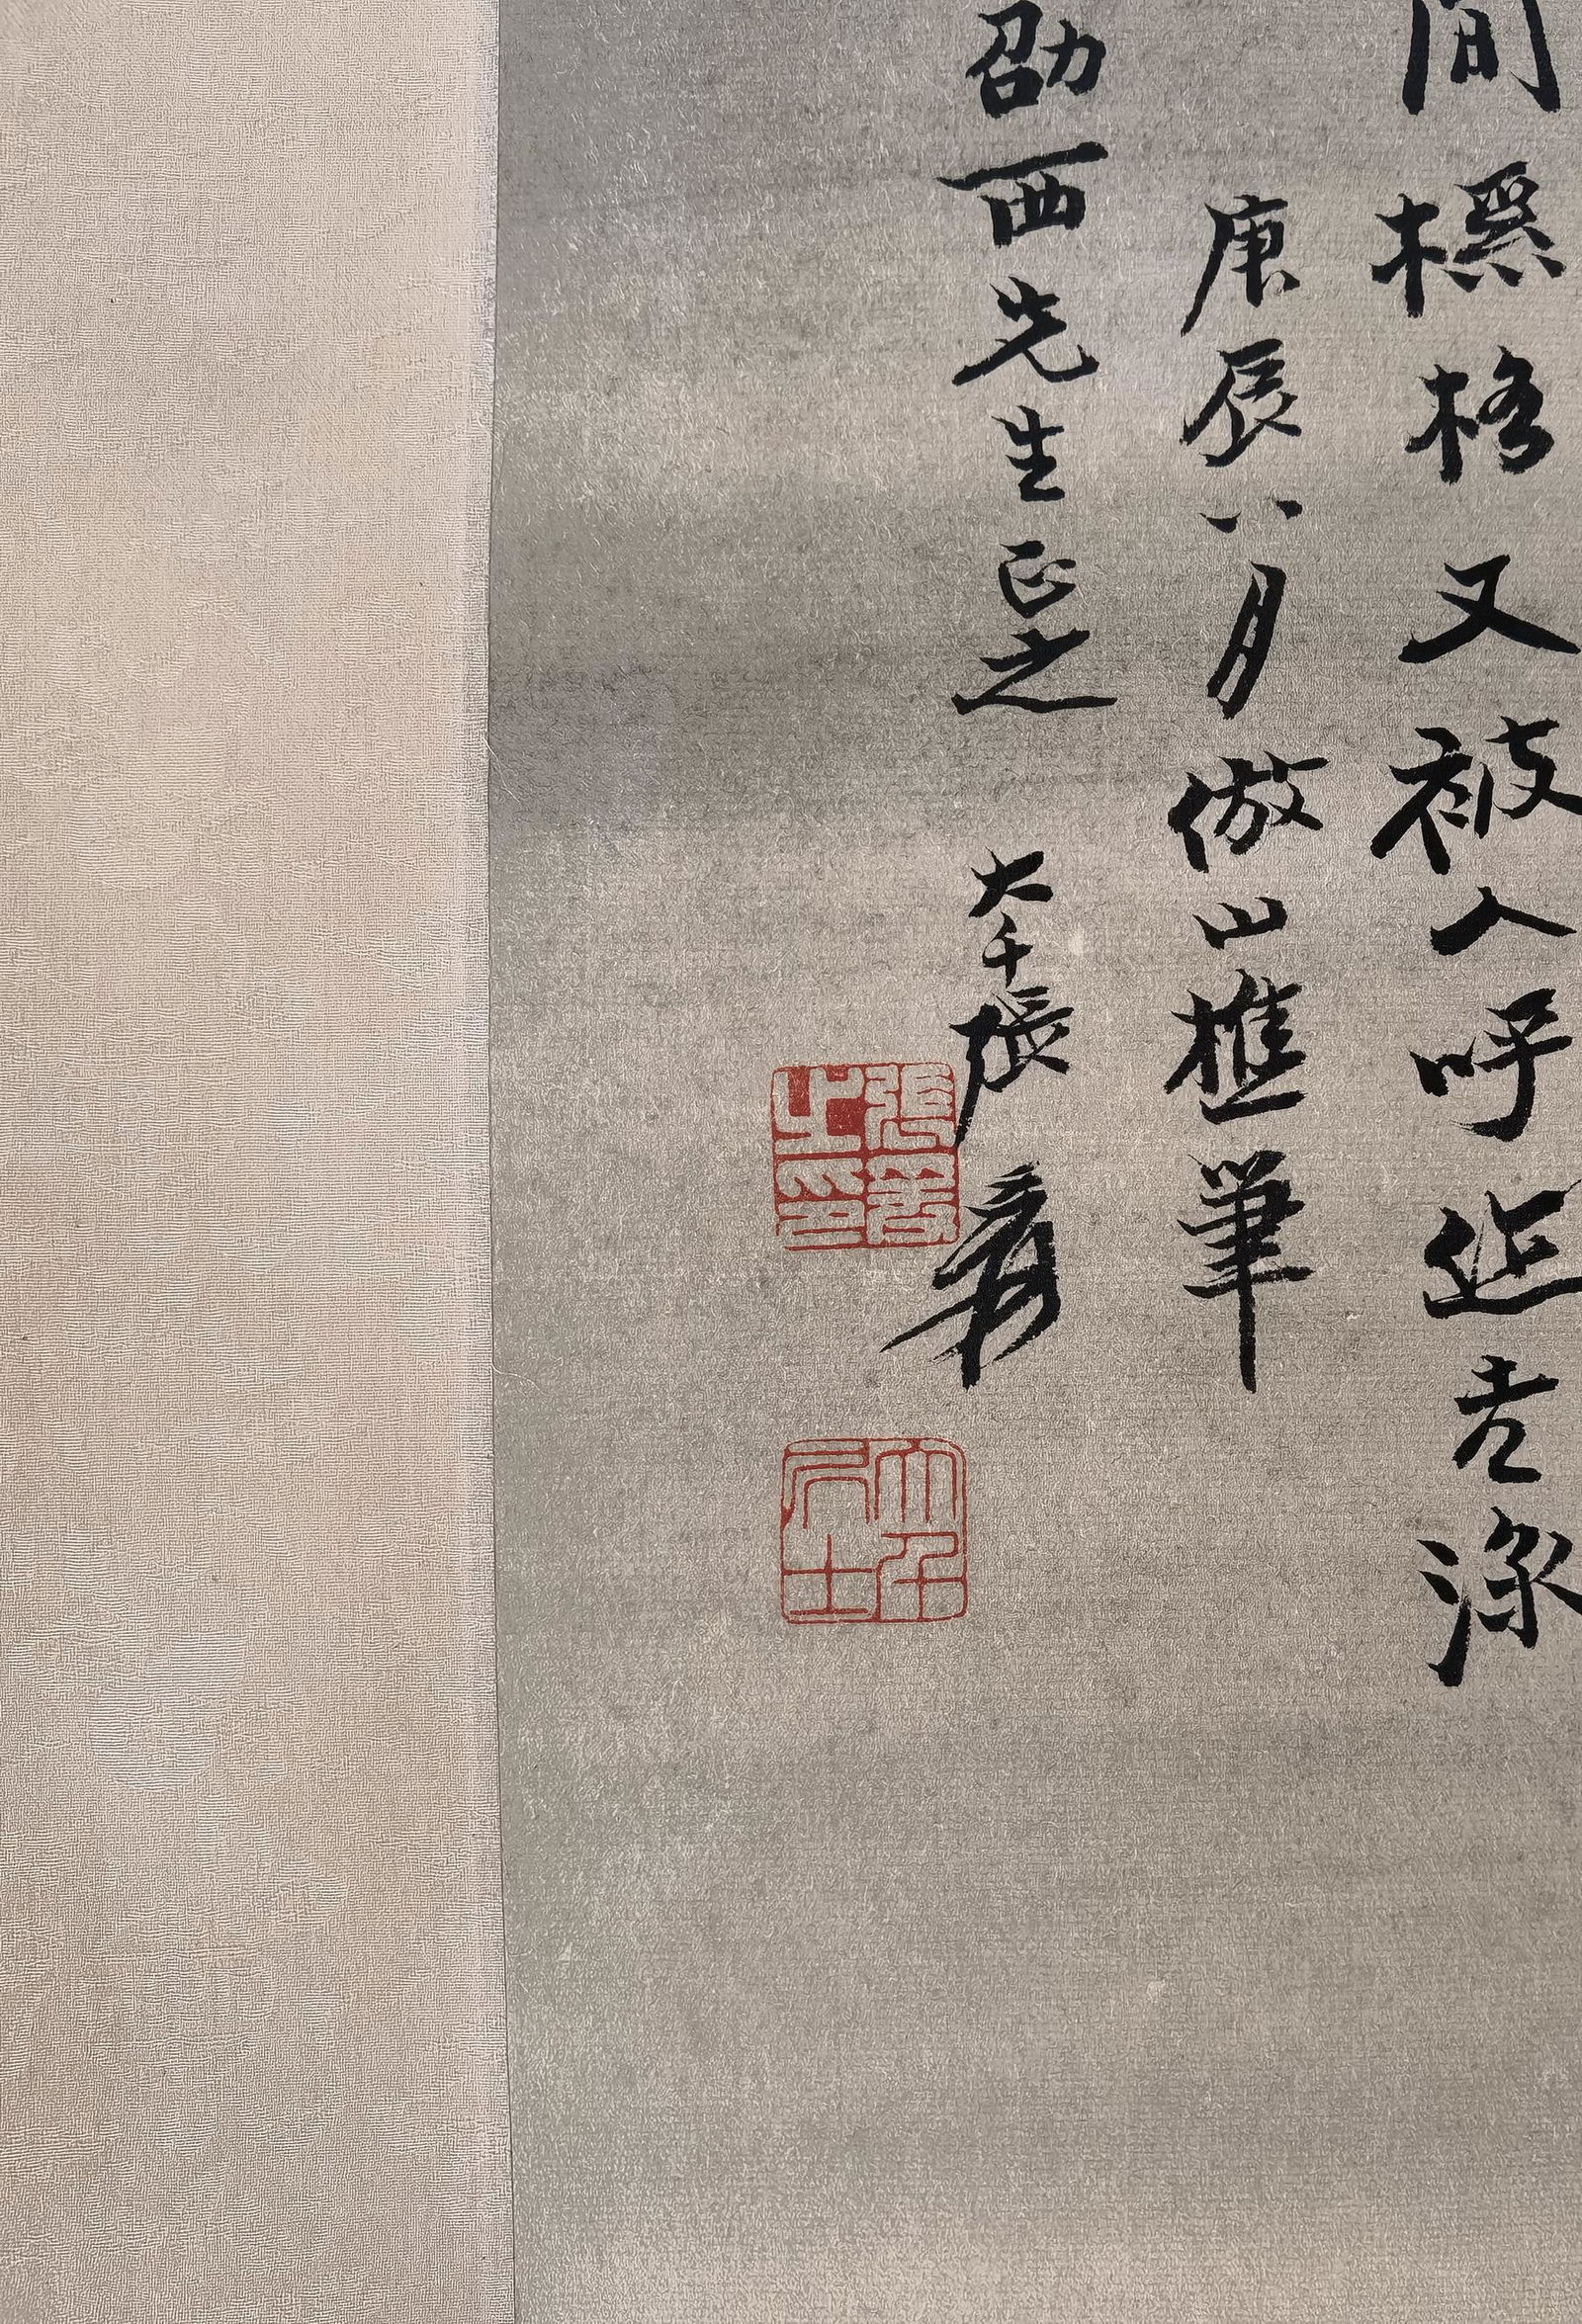 間標格又被人呼作老深
庚辰八月倣山樵筆
劭西先生正之 大千張爰
張爰之印
大千居士